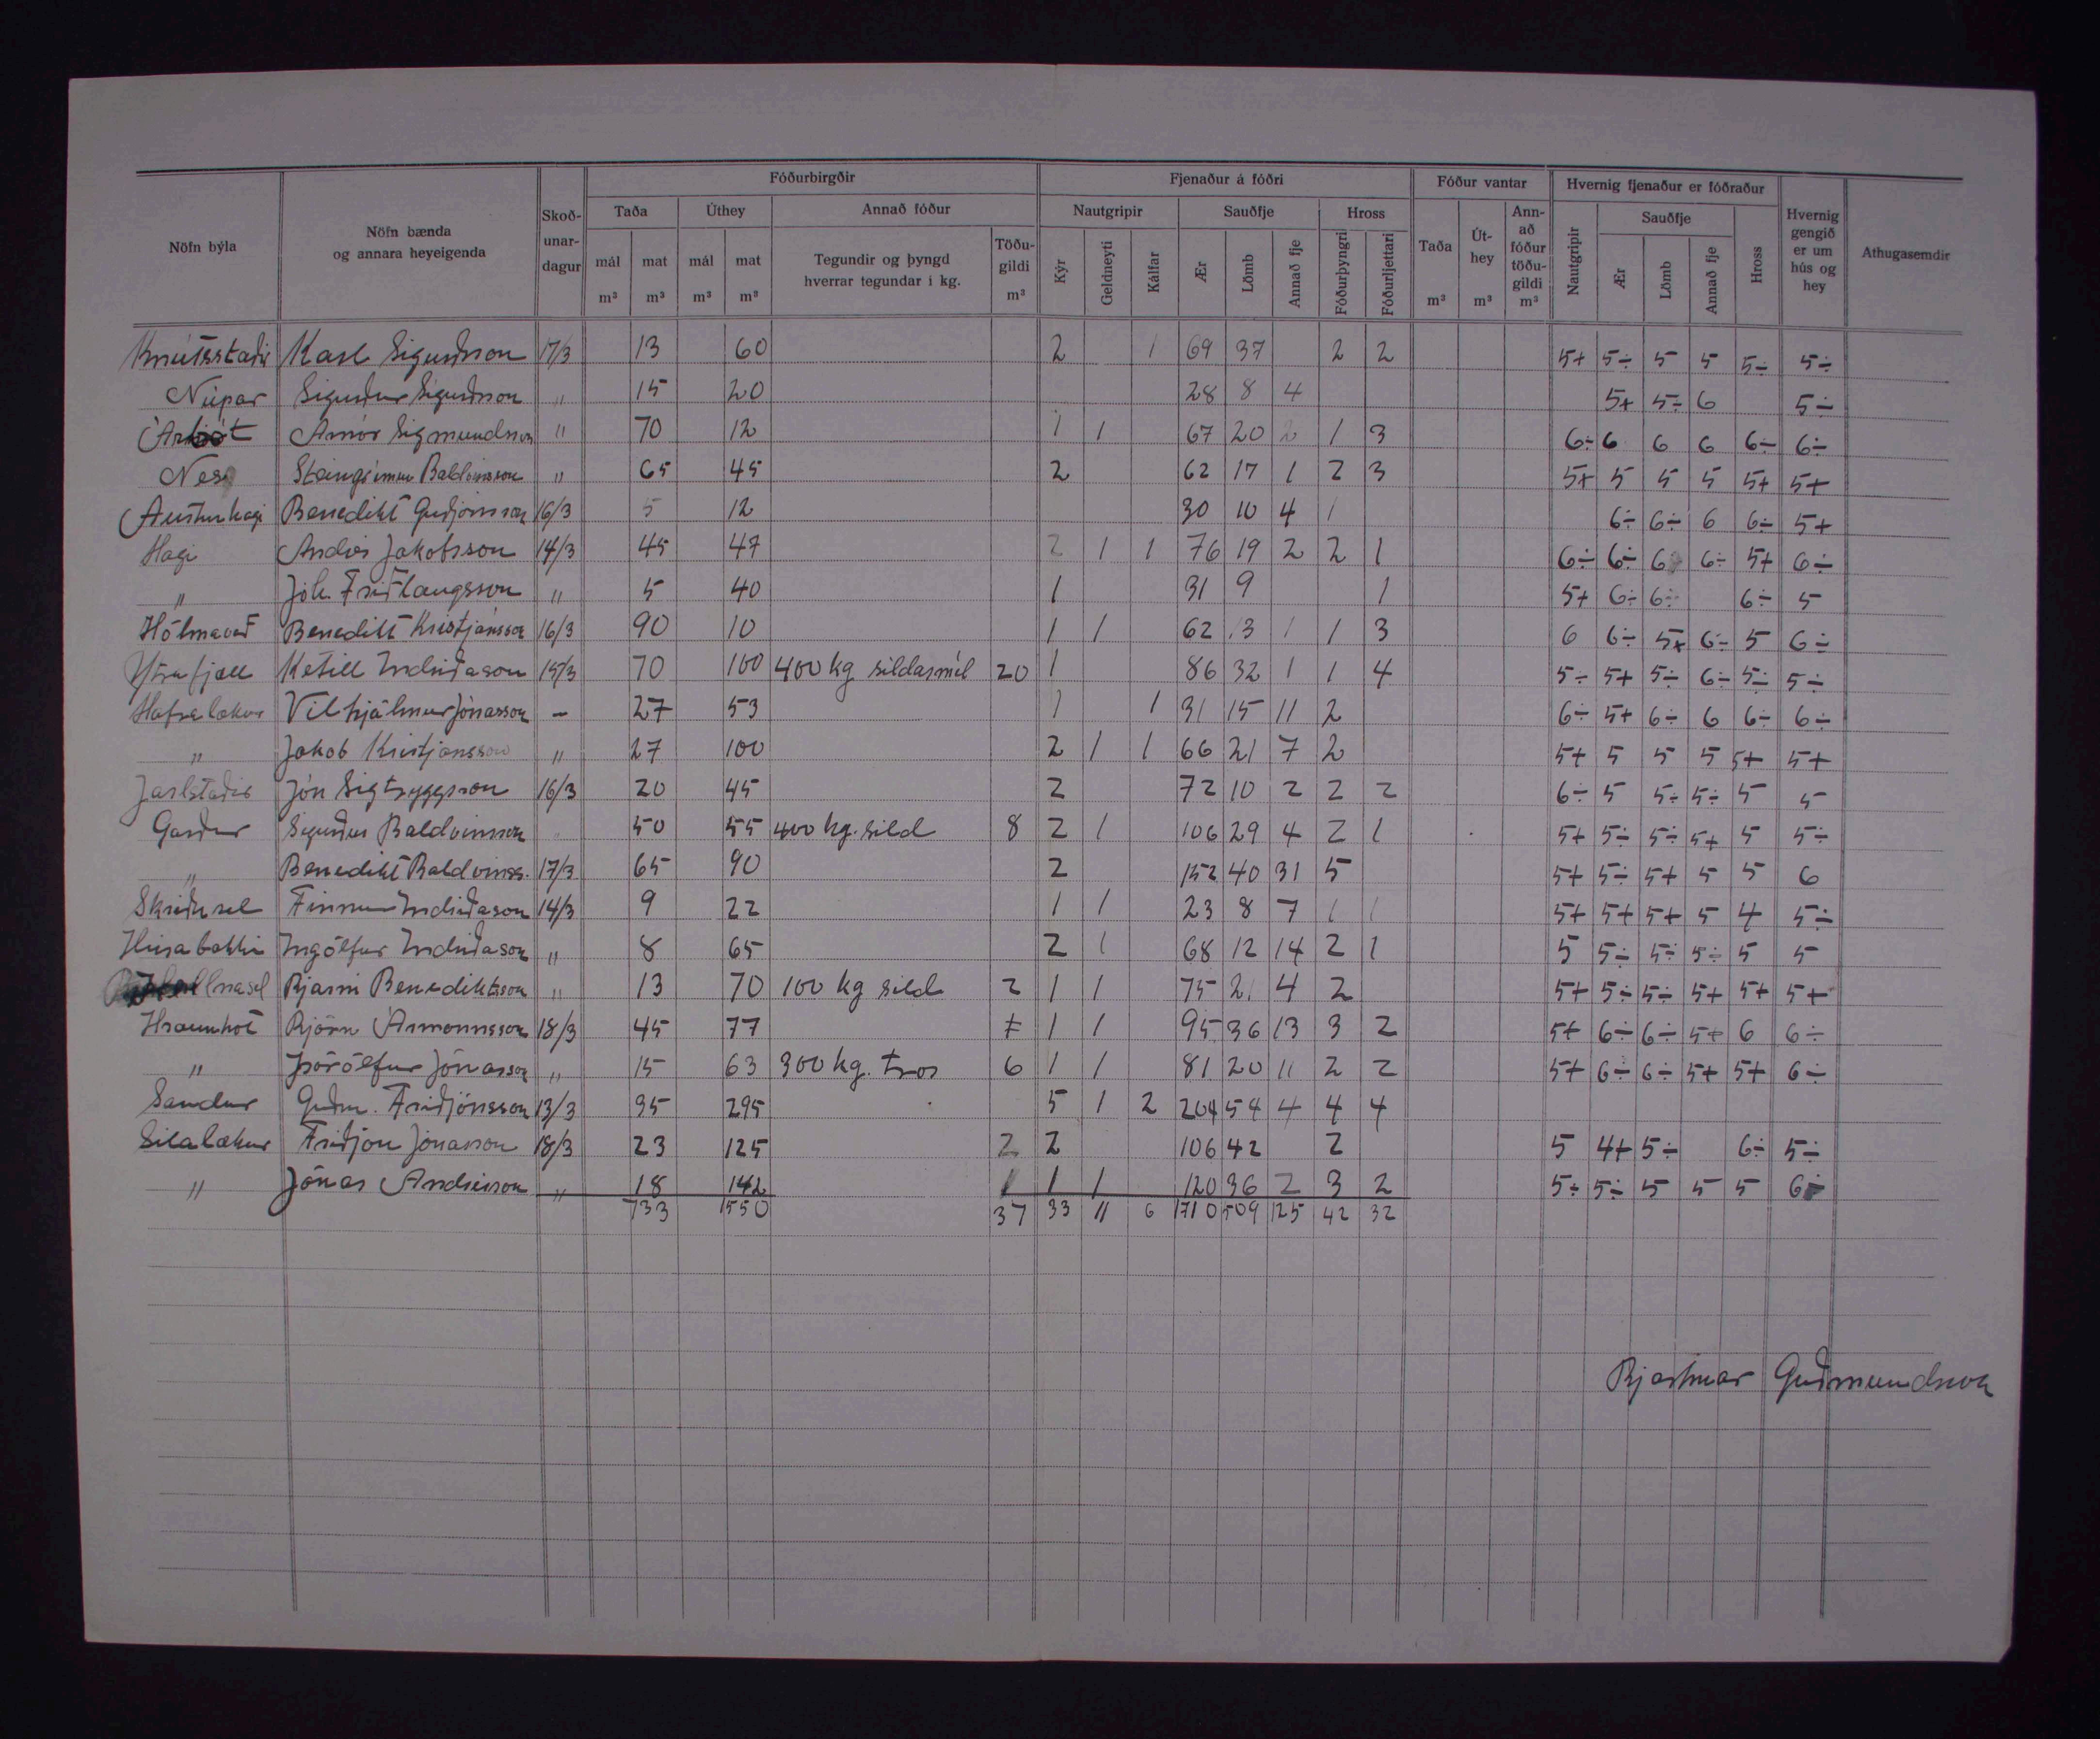 Fóðurbirgðir Fjenaður á fóðri Fóður vantar Hvernig fjenaður er fóðraður
Nöfn býla Nöfn bænda og annara heyeigenda Skoð-unar-dagur Taða Úthey Annað fóður Nautgripir Sauðfje Hross Taða Út-hey Ann-að fóður töðu-gildi m³ Nautgripir Sauðfje Hross Hvernig gengið er um hús og hey Athugasemdir
mál m³ mat m³ mál m³ mat m³ Tegundir og þyngd hverrar tegundar í kg. Töðu-gildi m³ Kýr Geldneyti Kálfar Ær Lömb Annað fje Fóðurþyngri Fóðurljettari m³ m³ Ær Lömb Annað fje
Knútsstaðir Karl Sigurðsson 17/3 13 60 2 1 69 37 2 2 5+ 5÷ 5 5 5÷ 5÷
Núpar Sigurður Sigurðsson " 15 20 28 8 4 5+ 5÷ 6 5÷
Árbót Arnór Sigmundsson " 70 12 1 1 67 20 2 1 3 6÷ 6 6 6 6÷ 6÷
Nes Steingrímur Baldvinsson " 65 45 2 62 17 1 2 3 5+ 5 5 5 5+ 5+
Austurhagi Benedikt Guðjónsson 16/3 5 12 30 10 4 1 6÷ 6÷ 6 6÷ 5+
Hagi Andrés Jakobsson 14/3 45 47 2 1 1 76 19 2 2 1 6÷ 6÷ 6 6÷ 5+ 6÷
" Jóh. Friðlaugsson " 5 40 1 31 9 1 5+ 6÷ 6÷ 6÷ 5
Hólmavað Benedikt Kristjánsson 16/3 90 10 1 1 62 13 1 1 3 6 6÷ 5+ 6÷ 5 6÷
Ytrafjall Ketill Indriðason 15/3 70 100 400 kg síldarmél 20 1 86 32 1 1 4 5÷ 5+ 5÷ 6÷ 5÷ 5÷
Hafralækur Vilhjálmur Jónasson – 27 53 1 1 31 15 11 2 6÷ 5+ 6÷ 6 6÷ 6÷
" Jakob Kristjánsson " 27 100 2 1 1 66 21 7 2 5+ 5 5 5 5+ 5+
Jarlstaðir Jón Sigtryggsson 16/3 20 45 2 72 10 2 2 2 6÷ 5 5÷ 5÷ 5 5
Garður Sigurður Baldvinsson " 50 55 400 kg. síld 8 2 1 106 29 4 2 1 5+ 5÷ 5÷ 5+ 5 5÷
" Benedikt Baldvinss. 17/3 65 90 2 152 40 31 5 5+ 5÷ 5+ 5 5 6
Skriðusel Finnur Indriðason 14/3 9 22 1 1 23 8 7 1 1 5+ 5+ 5+ 5 4 5÷
Húsabakki Ingólfur Indriðason " 8 65 2 1 68 12 14 2 1 5 5÷ 5÷ 5÷ 5 5
Bjarni Benediktsson " 13 70 100 kg síld 2 1 1 75 21 4 2 5+ 5÷ 5÷ 5+ 5+ 5+
Hraunkot Björn Ármannsson 18/3 45 77 1 1 95 36 13 3 2 5+ 6÷ 6÷ 5+ 6 6÷
" Þórólfur Jónasson " 15 63 300 kg. tros 6 1 1 81 20 11 2 2 5+ 6÷ 6÷ 5+ 5+ 6÷
Sandur Guðm. Friðjónsson 13/3 35 295 5 1 2 204 54 4 4 4
Sílalækur Friðjón Jónasson 18/3 23 125 2 2 106 42 2 5 4+ 5÷ 6÷ 5÷
" Jónas Andrésson " 18 142 1 1 1 120 36 2 3 2 5÷ 5÷ 5 5 5 6÷
733 1550 37 33 11 6 1710 509 125 42 32
Bjartmar Guðmundsson